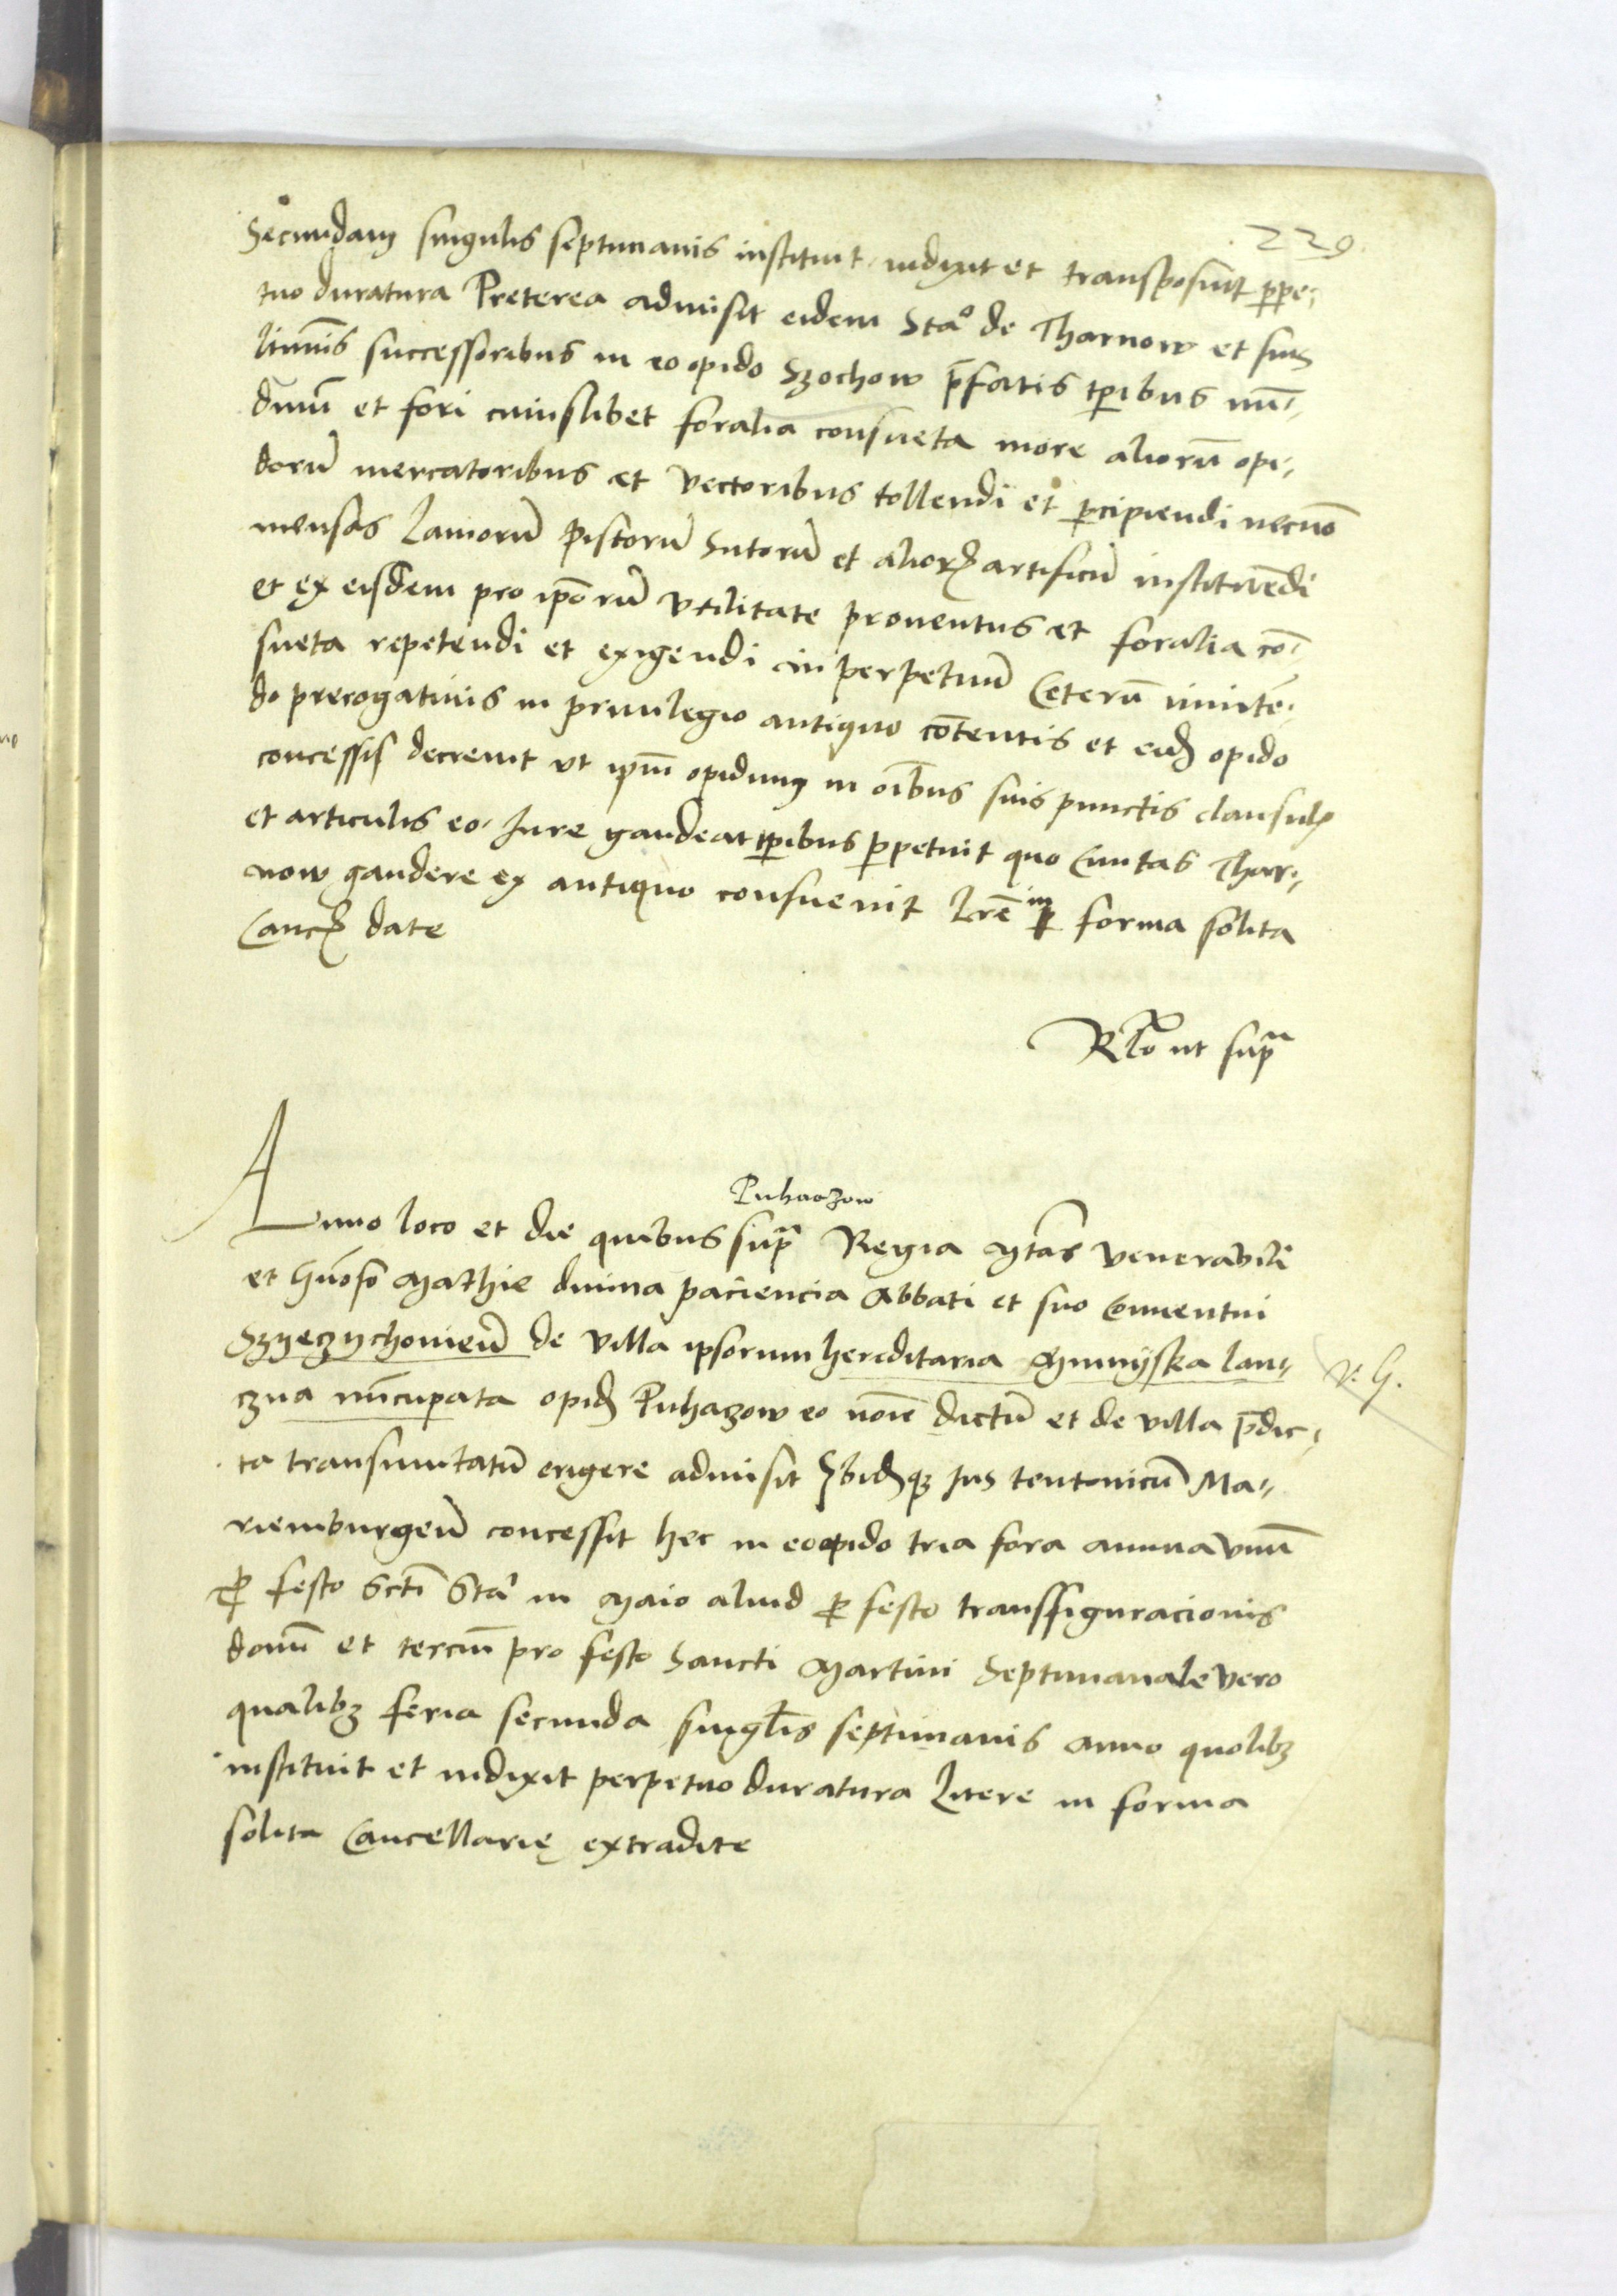 229
Secundam singulis septimanis instituit indixit et transposuit ppe-
tuo duratura Preterea admisit eidem Stao de Tharnow et suis
ltimis successoribus in eo opido Szochow pfatis tpibus nun-
dinu et fori cuiuslibet foralia consueta more alioru opi-
doru mercatoribus et vectoribus tollendi et pcipiendi necno
mensas Laniorum Pistoru Sutoru et alior artificu instituedi
et ex eisdem pro iporu vtilitate prouentus et foralia co-
sueta repetendi et exigendi in perpetuu Ceteru inuite-
do prerogatiuis in priuilegio antiquo cotentis et eid opido
concessis decreuit vt ipm opidum in oibus suis punctis clausulis
et articulis eo Jure gaudeat tpibus ppetuis quo Ciuitas Thar-
now gaudere ex antiquo consueuit Lre in forma solita
Canc date
Rlo ut supra
Puhaczow
Anno loco et die quibus supra Regia Mtas venerabili
et Mathie diuina paciencia Abbati et suo Conuentui
Szyeczychouien de villa ipsorum hereditaria Mnyyska lan-
czna nuncupata opid Puhaczow eo noie dictu et de villa pdic-
ta transmutatu erigere admisit Ibidq Jus teutonicu Ma-
rienburgen concessit hec in eo opido tria fora annua vnu
p festo Scti Sta in Maio aliud p festo transfiguracionis
domi et terciu pro festo Sancti Martini Septimanale vero
qualibz feria secunda singlis septimanis anno quolibz
instituit et indixit perpetuo duratura Litere in forma
solita Cancellarie extradite